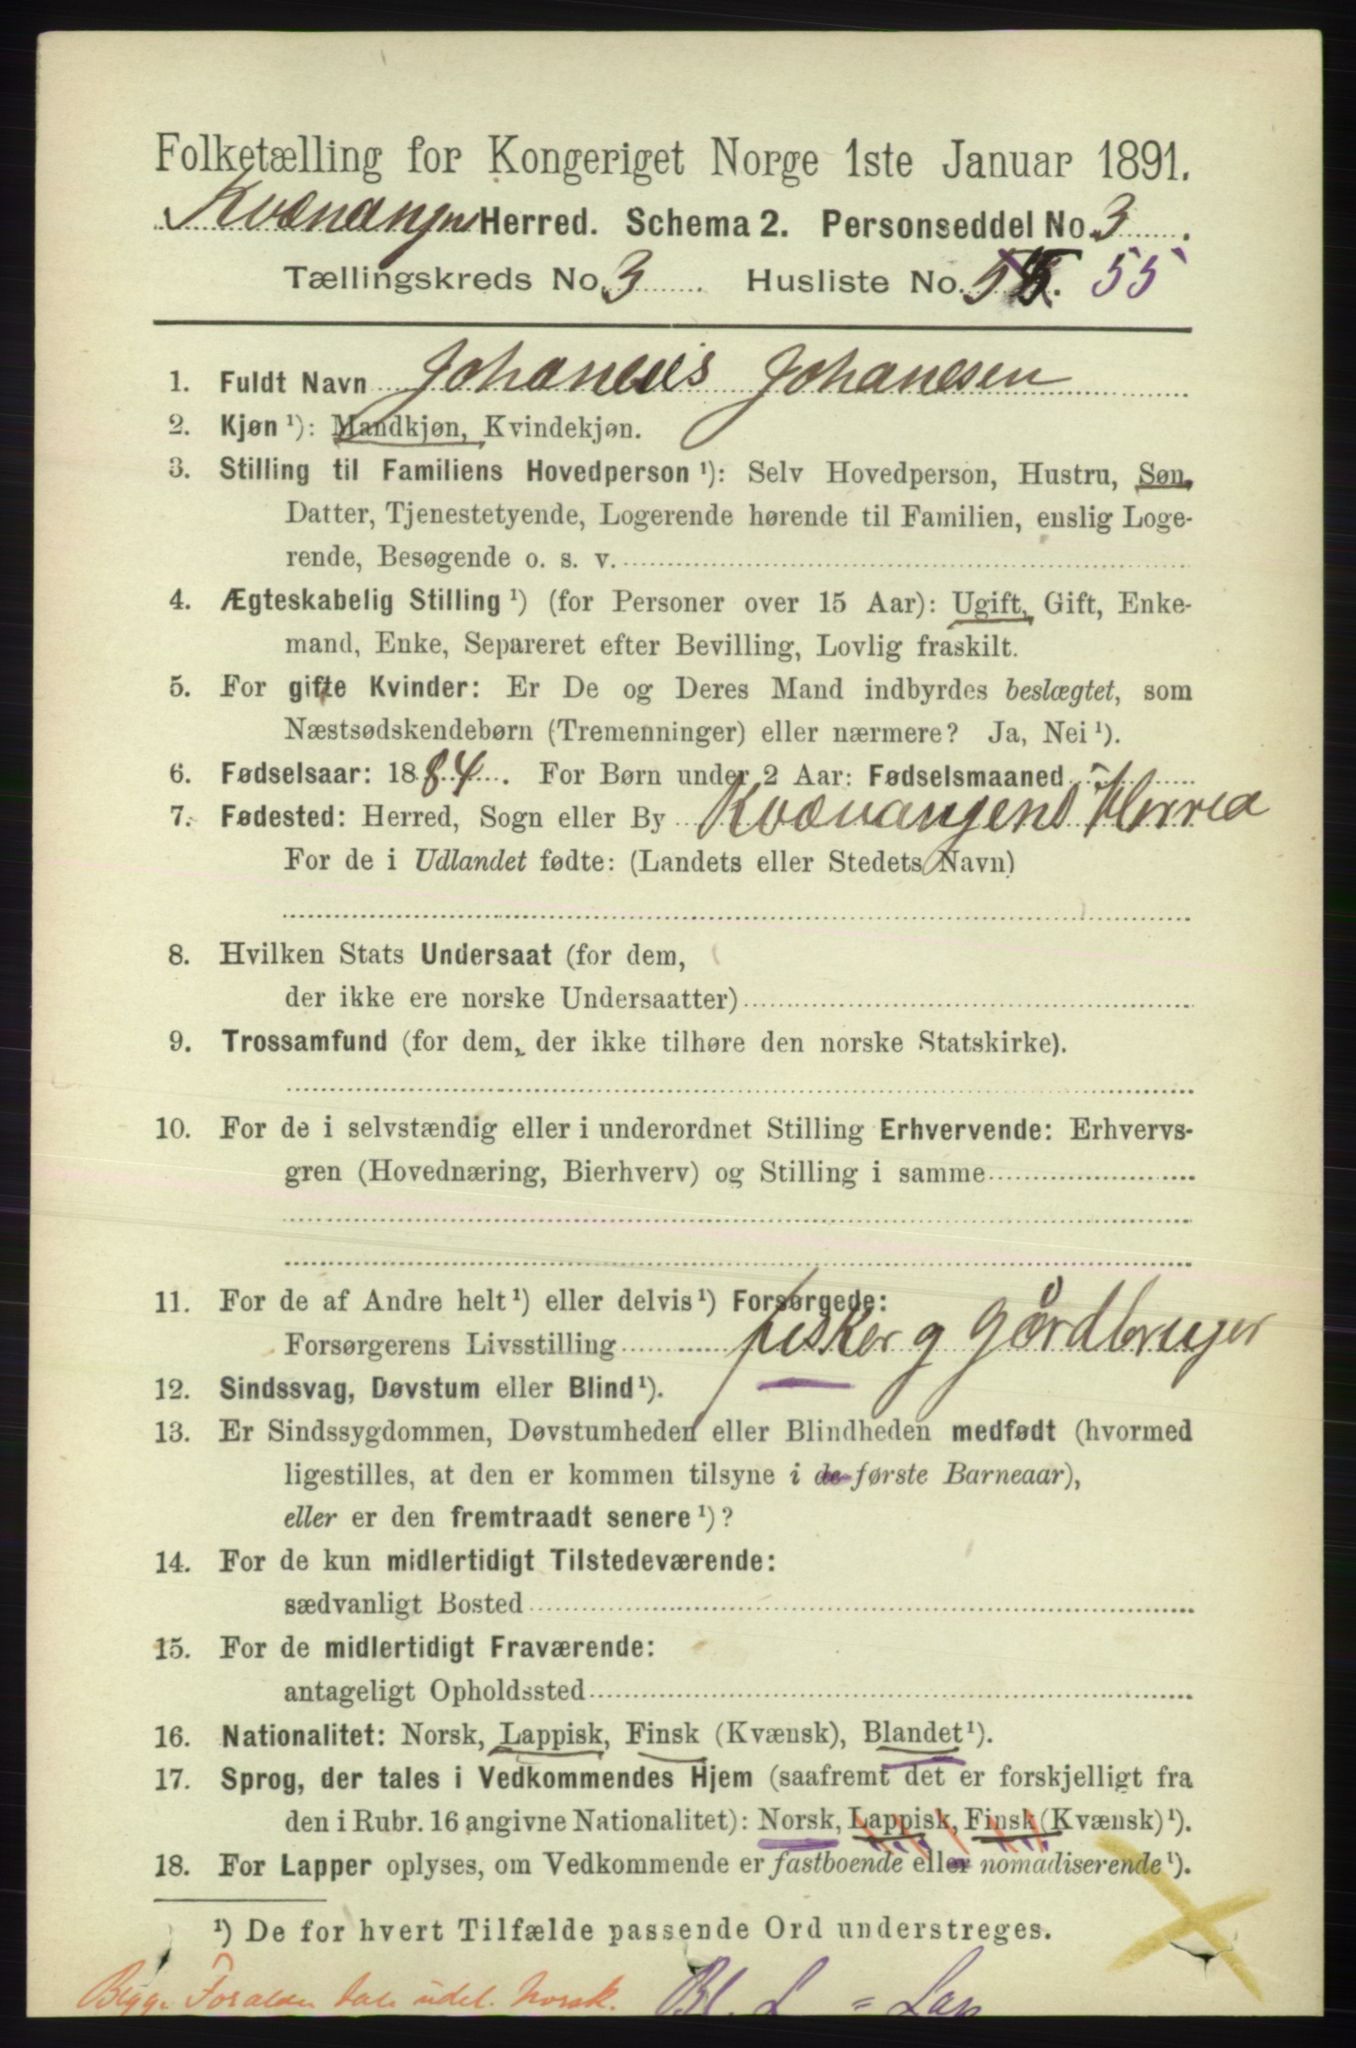 Folketælling for Kongeriget Norge 1ste Januar 1891.
Kvænangen Herred. Schema 2. Personseddel No. 3.
Tællingskreds No. 3 Husliste No. 55
1. Fuldt Navn Johannes Johanesen
2. Kjøn ¹): Mandkjøn, Kvindekjøn.
3. Stilling til Familiens Hovedperson ¹): Selv Hovedperson, Hustru, Søn,
Datter, Tjenestetyende, Logerende hørende til Familien, enslig Loge-
rende, Besøgende o. s. v.
4. Ægteskabelig Stilling ¹) (for Personer over 15 Aar): Ugift, Gift, Enke-
mand, Enke, Separeret efter Bevilling, Lovlig fraskilt.
5. For gifte Kvinder: Er De og Deres Mand indbyrdes beslægtet, som
Næstsødskendebørn (Tremenninger) eller nærmere? Ja, Nei ¹).
6. Fødselsaar: 1884. For Børn under 2 Aar: Fødselsmaaned
7. Fødested: Herred, Sogn eller By Kvænangens Herred
For de i Udlandet fødte: (Landets eller Stedets Navn)
8. Hvilken Stats Undersaat (for dem,
der ikke ere norske Undersaatter)
9. Trossamfund (for dem, der ikke tilhøre den norske Statskirke).
10. For de i selvstændig eller i underordnet Stilling Erhvervende: Erhvervs-
gren (Hovednæring, Bierhverv) og Stilling i samme
11. For de af Andre helt ¹) eller delvis ¹) Forsørgede:
Forsørgerens Livsstilling fisker g gårdbruger
12. Sindssvag, Døvstum eller Blind ¹).
13. Er Sindssygdommen, Døvstumheden eller Blindheden medfødt (hvormed
ligestilles, at den er kommen tilsyne i de første Barneaar),
eller er den fremtraadt senere ¹)?
14. For de kun midlertidigt Tilstedeværende:
sædvanligt Bosted
15. For de midlertidigt Fraværende:
antageligt Opholdssted
16. Nationalitet: Norsk, Lappisk, Finsk (Kvænsk), Blandet ¹).
17. Sprog, der tales i Vedkommendes Hjem (saafremt det er forskjelligt fra
den i Rubr. 16 angivne Nationalitet): Norsk, Lappisk, Finsk (Kvænsk) ¹).
18. For Lapper oplyses, om Vedkommende er fastboende eller nomadiserende ¹).
¹) De for hvert Tilfælde passende Ord understreges.
tale udel. norsk. Bl. L = Lap